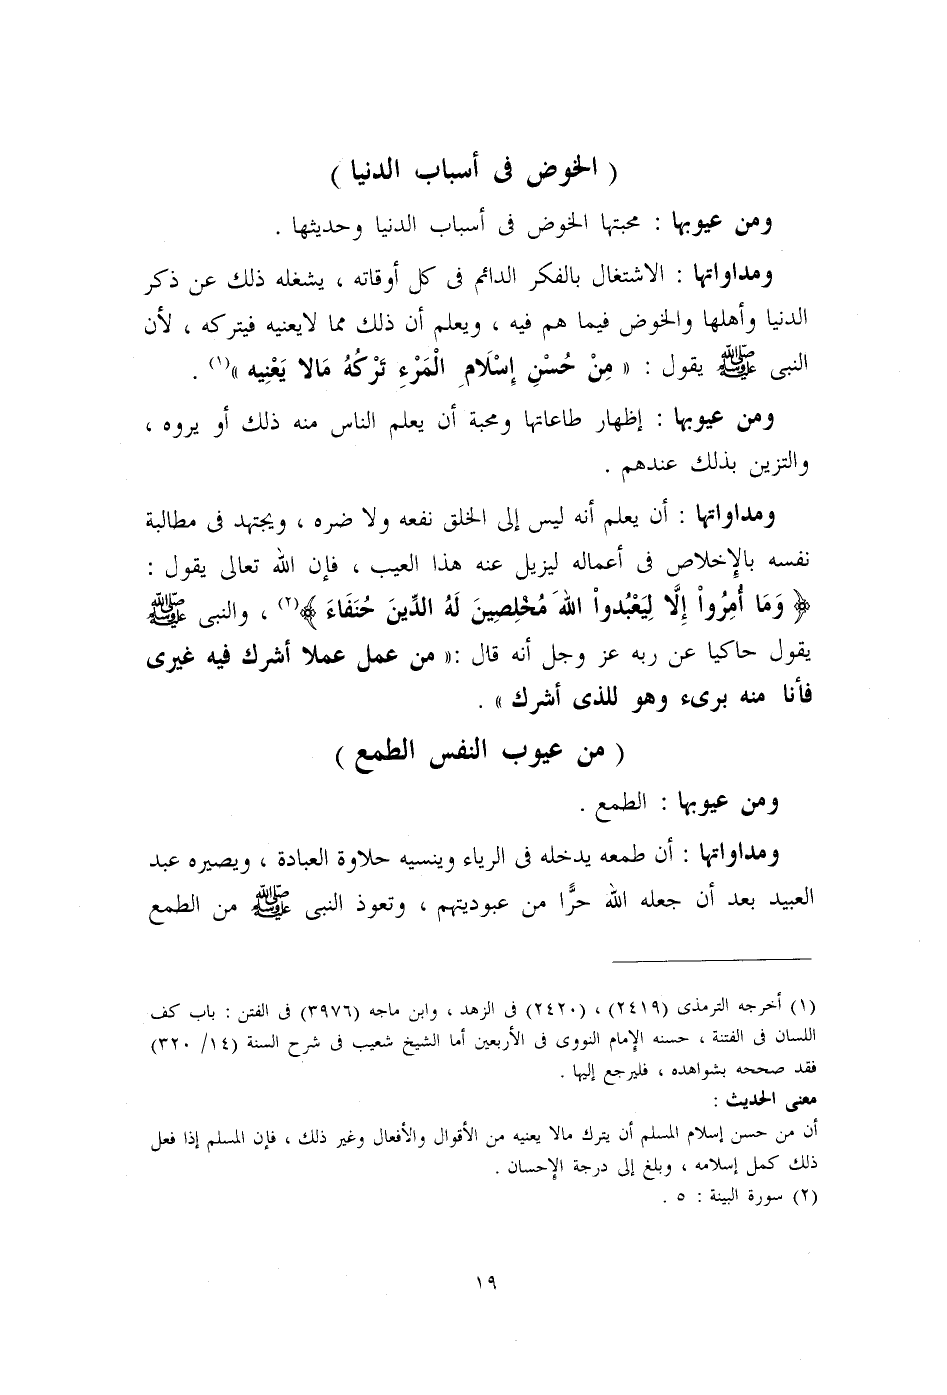 ( الخوض فى أسباب الدنيا )
ومن عيوبها : محبتها الخوض فى أسباب الدنيا وحديثها .
ومداواتها : الاشتغال بالفكر الدائم فى كل أوقاته ، يشغله ذلك عن ذكر
الدنيا وأهلها والخوض فيما هم فيه ، ويعلم أن ذلك مما لايعنيه فيتركه ، لأن
النبى ﷺ يقول : « مِنْ حُسْنِ إِسْلَامِ الْمَرْءِ تَرْكُهُ مَالا يَعْنِيه »(١) .
ومن عيوبها : إظهار طاعاتها ومحبة أن يعلم الناس منه ذلك أو يروه ،
والتزين بذلك عندهم .
ومداواتها : أن يعلم أنه ليس إلى الخلق نفعه ولا ضره ، ويجتهد فى مطالبة
نفسه بالإِخلاص فى أعماله ليزيل عنه هذا العيب ، فإن الله تعالى يقول :
﴿ وَمَا أُمِرُواْ إِلَّا لِيَعْبُدواْ اللهَ مُخْلِصِينَ لَهُ الدِّينَ حُنَفَاءَ ﴾(٢) ، والنبى ﷺ
يقول حاكيا عن ربه عز وجل أنه قال :« من عمل عملا أشرك فيه غيرى
فأنا منه برىء وهو للذى أشرك » .
( من عيوب النفس الطمع )
ومن عيوبها : الطمع .
ومداواتها : أن طمعه يدخله فى الرياء وينسيه حلاوة العبادة ، ويصيره عبد
العبيد بعد أن جعله الله حرًّا من عبوديتهم ، وتعوذ النبى ﷺ من الطمع
(١) أخرجه الترمذى (٢٤١٩) ، (٢٤٢٠) فى الزهد ، وابن ماجه (٣٩٧٦) فى الفتن : باب كف
اللسان فى الفتنة ، حسنه الإِمام النووى فى الأربعين أما الشيخ شعيب فى شرح السنة (١٤/ ٣٢٠)
فقد صححه بشواهده ، فليرجع إليها .
معنى الحديث :
أن من حسن إسلام المسلم أن يترك مالا يعنيه من الأقوال والأفعال وغير ذلك ، فإن المسلم إذا فعل
ذلك كمل إسلامه ، وبلغ إلى درجة الإِحسان .
(٢) سورة البينة : ٥ .
١٩